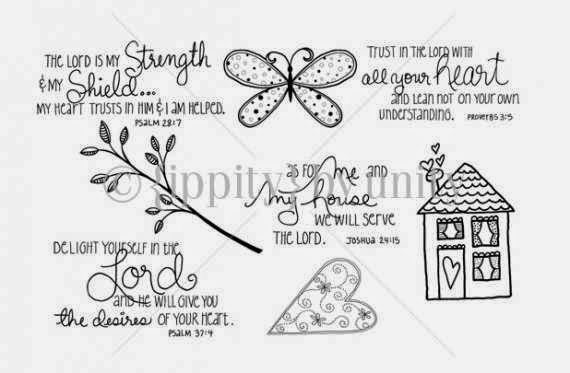 THE LORD IS MY Strength
& MY Shield...
MY HEART TRUSTS IN HIM & I AM HELPED.
PSALM 28:7
TRUST IN THE LORD WITH
all your heart
AND LEAN NOT ON YOUR OWN
UNDERSTANDING. PROVERBS 3:5
© {ippity} by unity
as FOR Me and
my house
WE WILL SERVE
THE LORD. JOSHUA 24:15
DELIGHT YOURSELF IN the
Lord
AND HE WILL GIVE YOU
the desires OF YOUR HEART.
PSALM 37:4